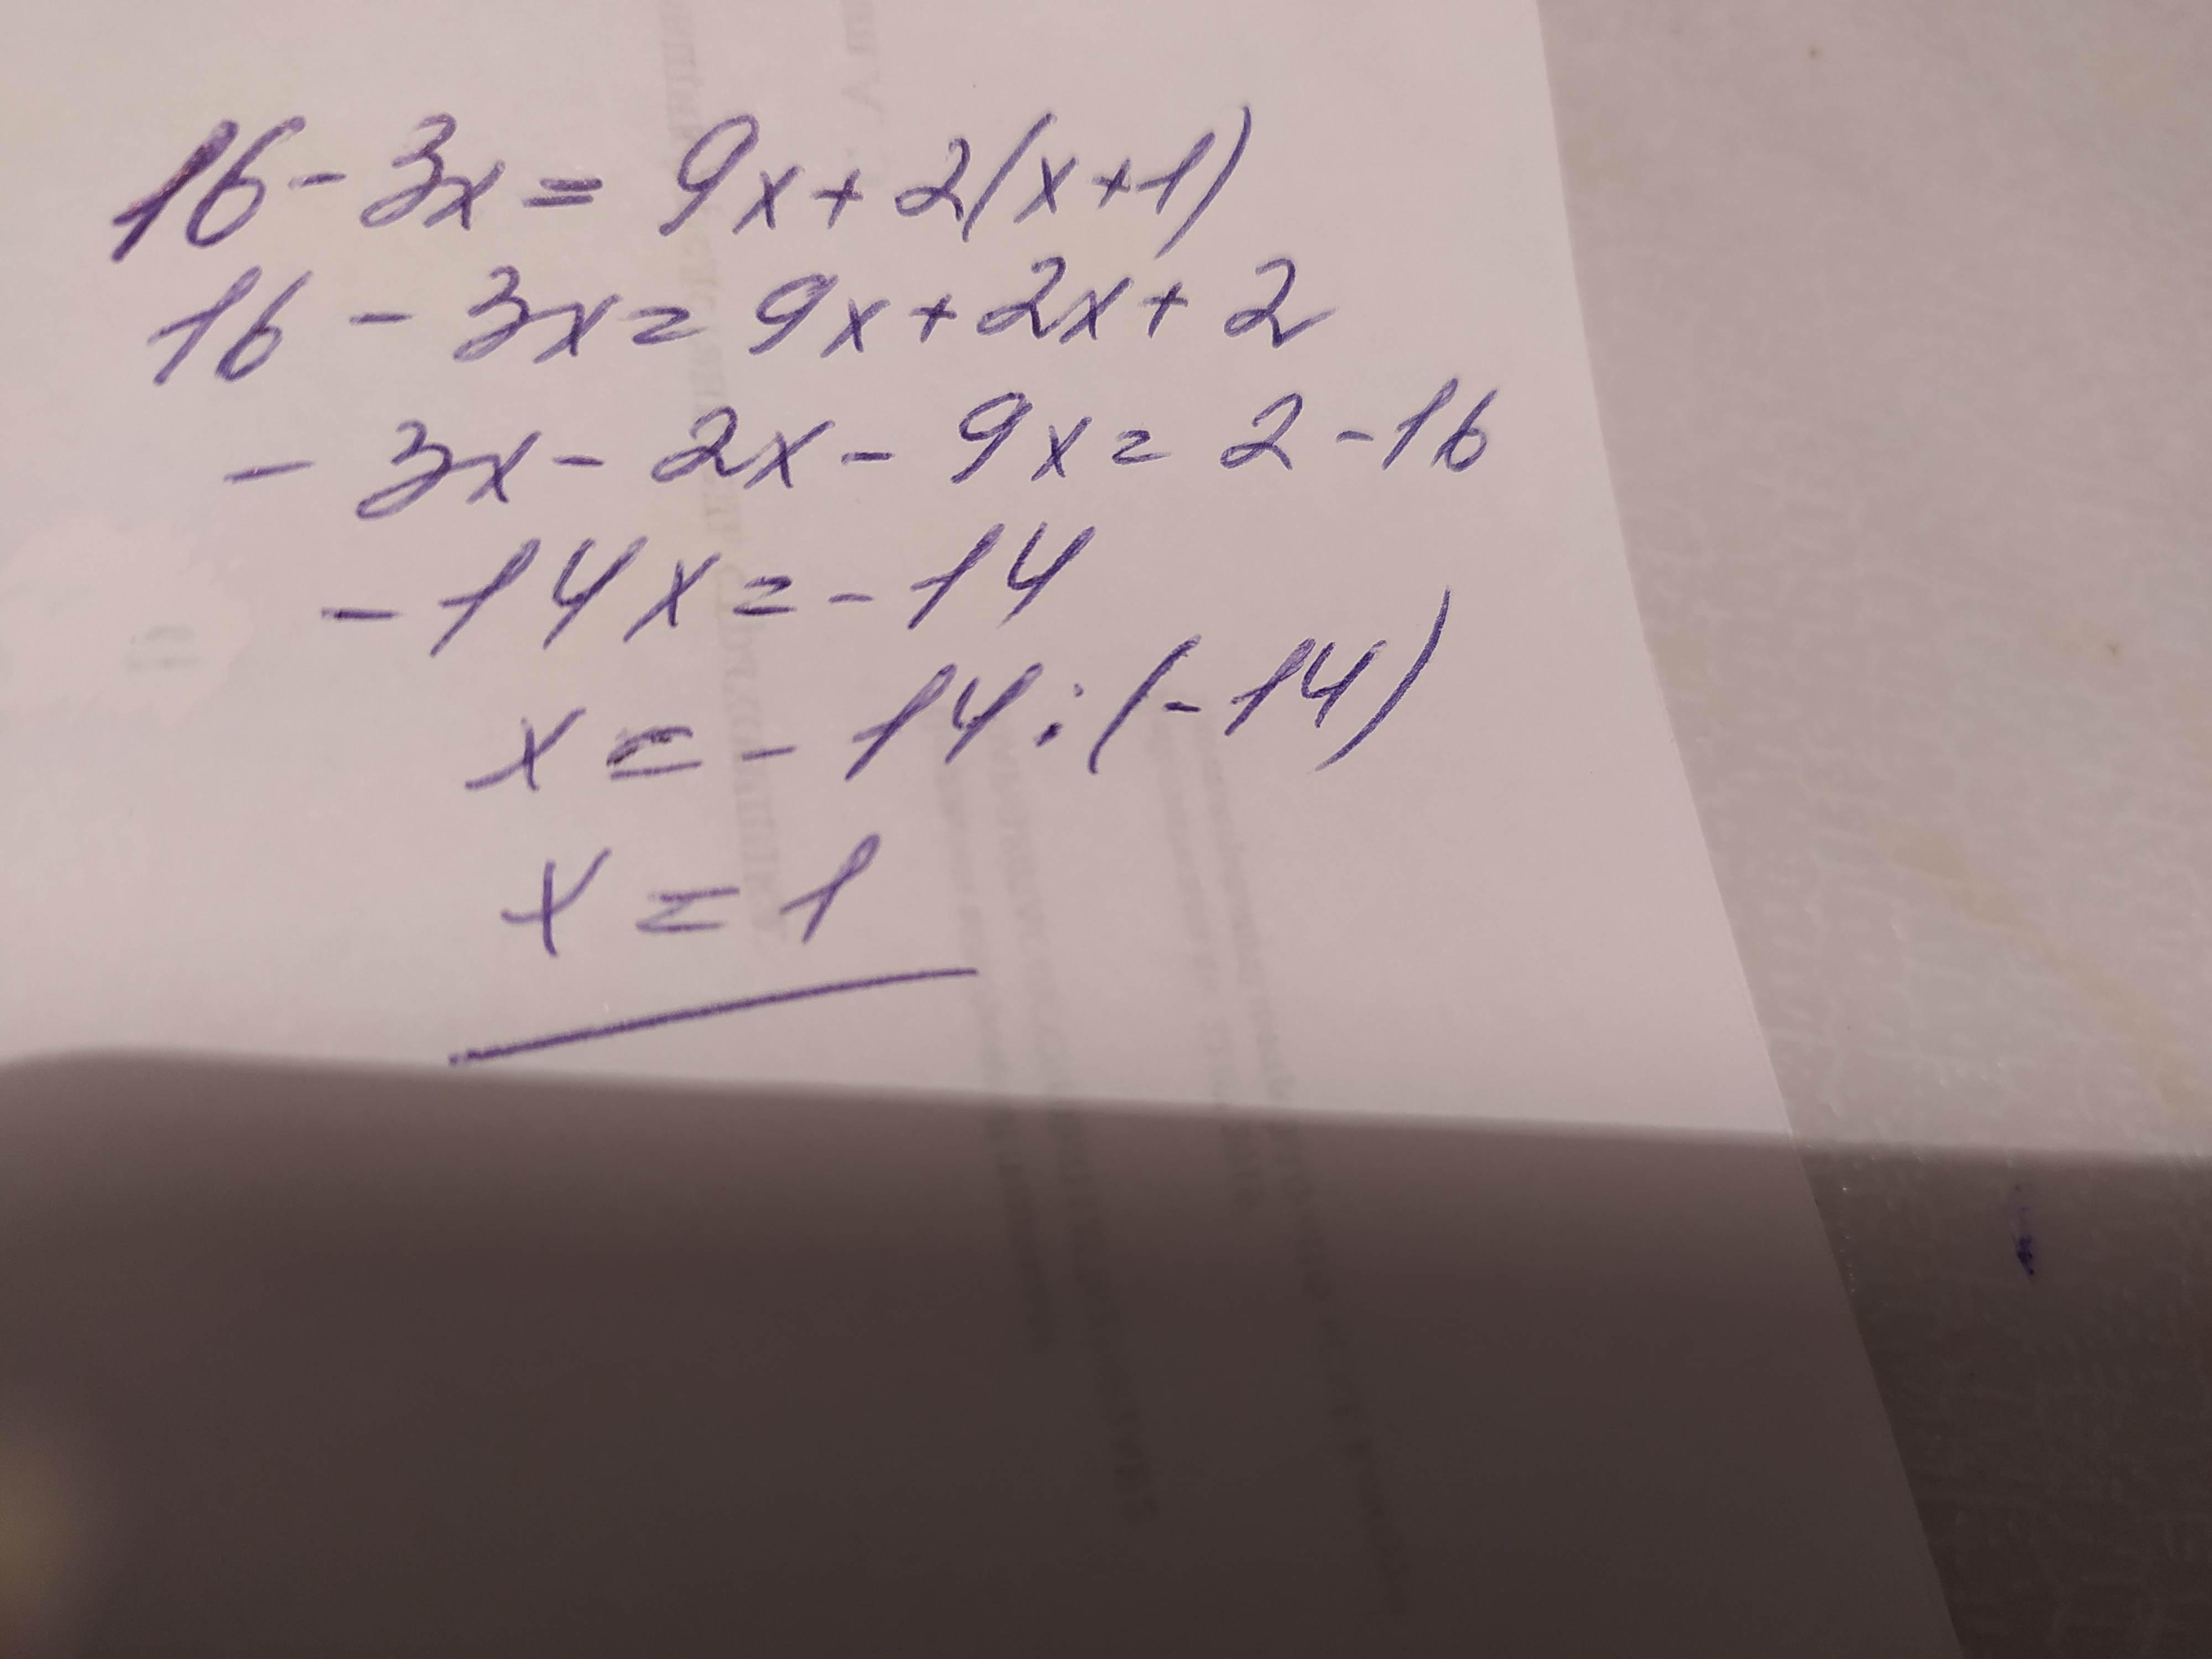 16 - 3x = 9x + 2(x+1)
16 - 3x = 9x + 2x + 2
- 3x - 2x - 9x = 2 - 16
- 14x = - 14
x = - 14 : (-14)
x = 1